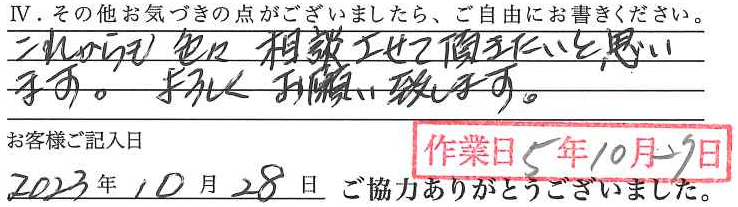 Ⅳ．その他お気づきの点がございましたら、ご自由にお書きください。
これからも色々相談させて頂きたいと思い
ます。よろしくお願い致します。
お客様ご記入日
作業日5年10月27日
2023年10月28日 ご協力ありがとうございました。